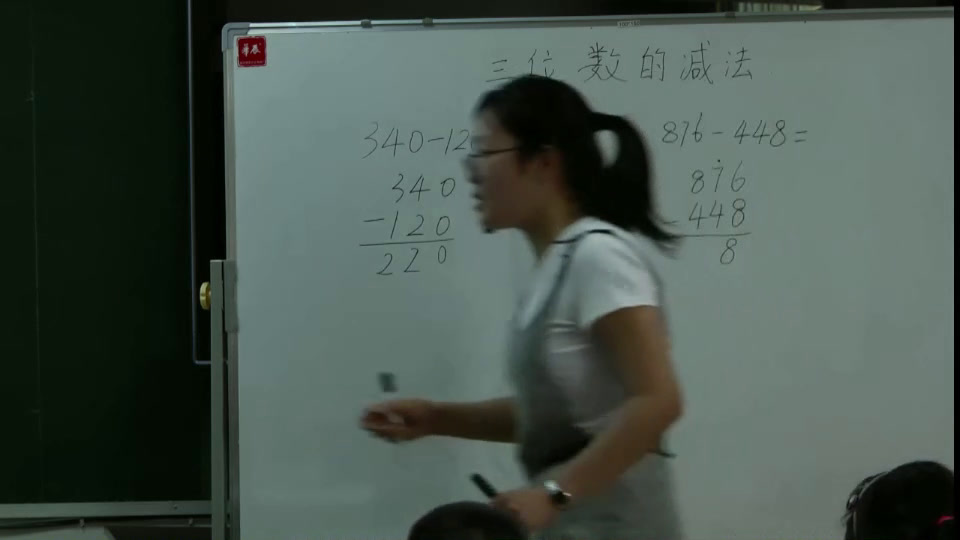 华晨
三位数的减法
340-12
340
-120
220
876-448=
876
-448
8